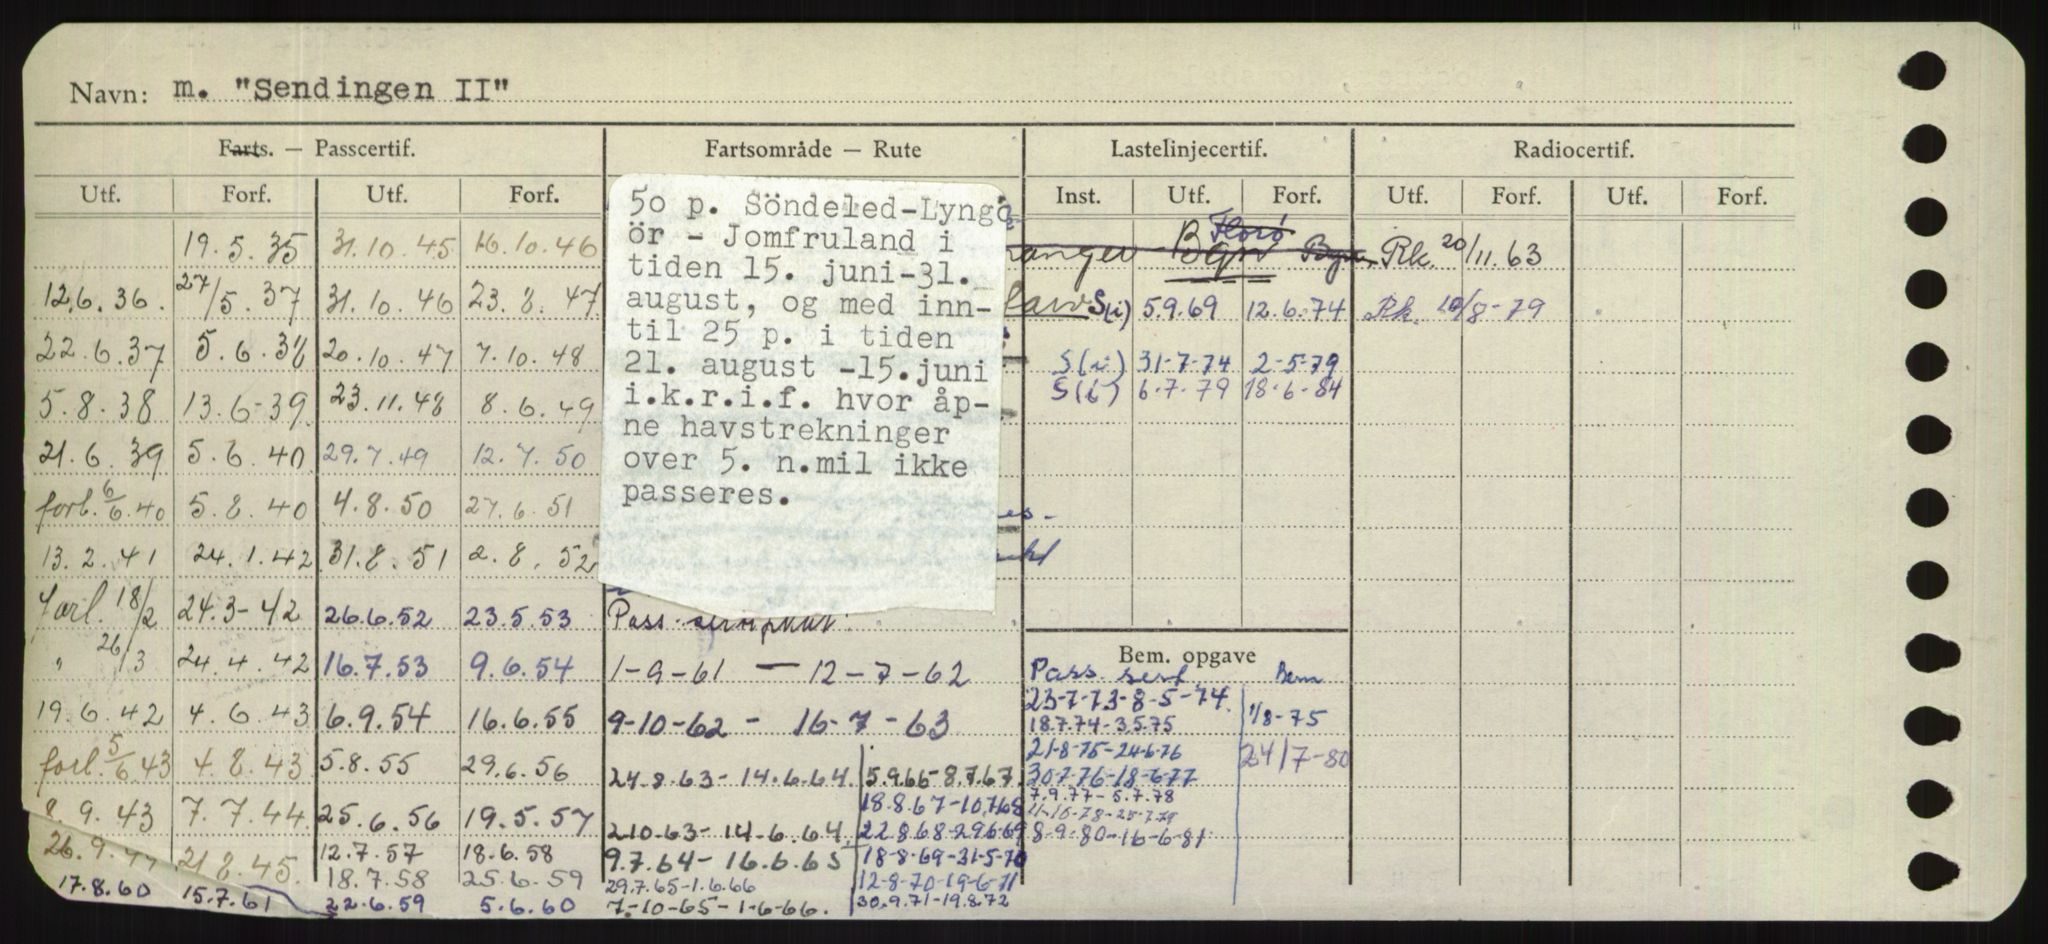 Navn: m. "Sendingen II"
Farts. — Passcertif. Fartsområde — Rute Lastelinjecertif. Radiocertif.
Utf. Forf. Utf. Forf. Inst. Utf. Forf. Utf. Forf. Utf. Forf.
50 p. Söndeled-Lyng
ör - Jomfruland i
tiden 15. juni-31.
august, og med inn-
til 25 p. i tiden
21. august -15.juni
i.k.r.i.f. hvor åp-
ne havstrekninger
over 5. n.mil ikke
passeres.
19.5.35 31.10.45 16.10.46
12.6.36. 27/5.37 31.10.46 23.8.47
22.6.37 5.6.38 20.10.47 7.10.48
5.8.38 13.6-39 23.11.48 8.6.49
21.6.39 5.6.40 29.7.49 12.7.50
forl. 6/6.40 5.8.40 4.8.50 27.6.51
13.2.41 24.1.42 31.8.51 2.8.52
forl. 18/2 24.3-42 26.6.52 23.5.53 Pass.
" 26/3 24.4.42 16.7.53 9.6.54 1-9-61 — 12-7-62
19.6.42 4.6.43 6.9.54 16.6.55 9-10-62 - 16-7-63
forl. 5/6.43 4.8.43 5.8.55 29.6.56 24.8.63-14.6.64. 5.9.66-8.7.67
8.9.43 7.7.44 25.6.56 19.5.57 18.8.67-10.7.68
2.10.63-14.6.64. 22.8.68-29.6.69
26.9.44 21.8.45. 12.7.57 18.6.58 9.7.64-16.6.65 18-8-69-31-5-70
18.7.58 25.6.59 29.7.65-1.6.66 12-8-70-19-6-71
17.8.60 15.7.61 22.6.59 5.6.60 7-10-65-1-6-66. 30.9.71-19.8.72
Florø
anger Bgn Bgn. Rk. 20/11.63
S(i) 5.9.69 12.6.74 Rk. 10/8-79
S(i) 31-7-74 2-5-79
S(i) 6.7.79 18.6.84
Bem. opgave
Pass. sert. Bem
23-7-73-8-5-74.
18.7.74-3.5.75 1/8-75
21-8-75-24-6-76
30.7.76-18-6-77 24/7-80
7.9.77-5.7.78
8-9-80-16-6-81